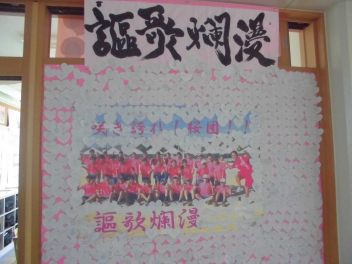 謳歌爛漫
咲き誇れ！桜団！！
謳歌爛漫